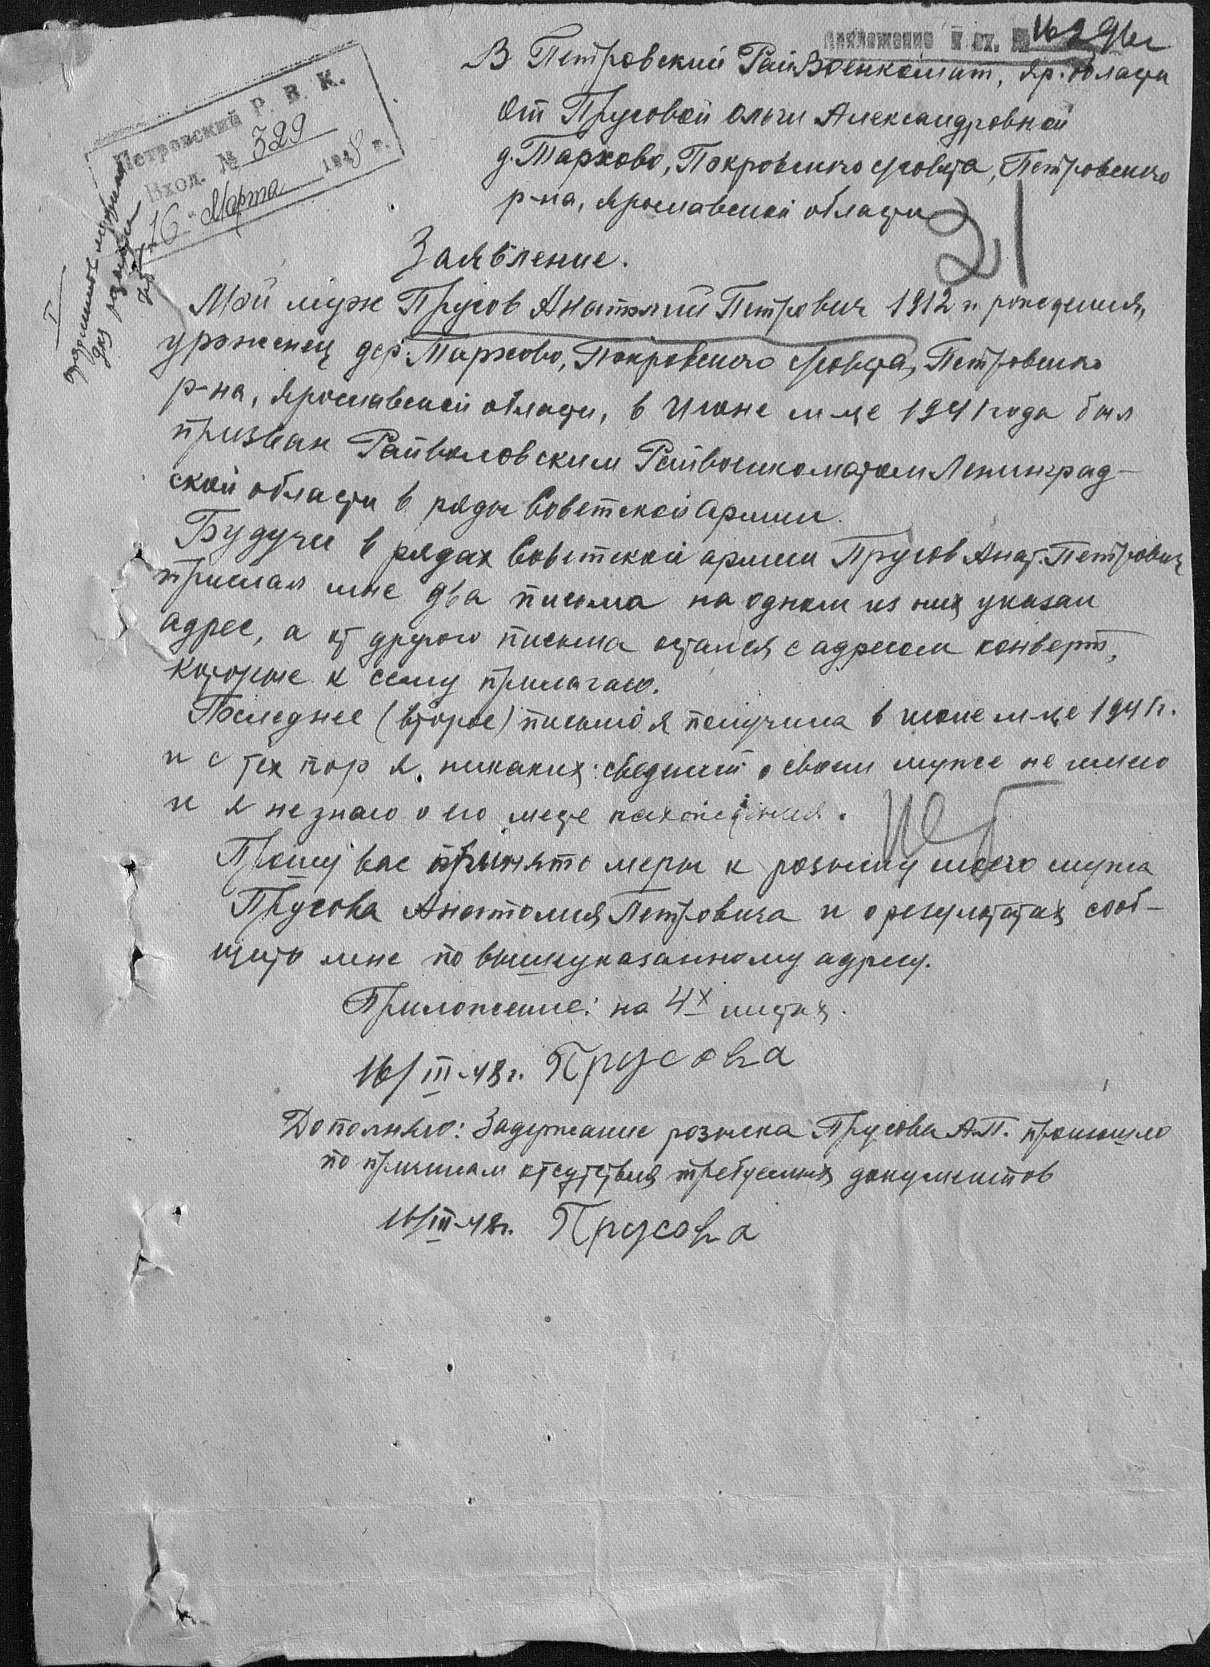 Приложение к вх. №
Петровский Р. В. К.
Вход. № 329
16 Марта 1948 г.
В Петровский РайВоенкомат, Яр. области
От Прусовой Ольги Александровной
д. Тархово, Покровского с/совета, Петровского
р-на, Ярославской области
21
Заявление.
Мой муж Прусов Анатолий Петрович 1912 г. рождения,
уроженец дер. Тархово, Покровского с/совета, Петровского
р-на, Ярославской области, в июне м-це 1941 года был
призван Райволовским Райвоенкоматом Ленинград-
ской области в ряды Советской Армии.
Будучи в рядах Советской армии Прусов Анат. Петрович
прислал мне два письма на одном из них указан
адрес, а от другого письма остался с адресом конверт,
которые к сему прилагаю.
Последнее (второе) письмо я получила в июле м-це 1941 г.
и с тех пор я никаких сведений о своем муже не имею
и я не знаю о его месте нахождения.
Прошу вас принять меры к розыску моего мужа
Прусова Анатолия Петровича и о результатах сооб-
щить мне по вышеуказанному адресу.
Приложение: на 4х листах.
16/III-48 г. Прусова
Дополняю: Задержание розыска Прусова А.П. произошло
по причинам отсутствия требуемых документов
16/III-48 г. Прусова